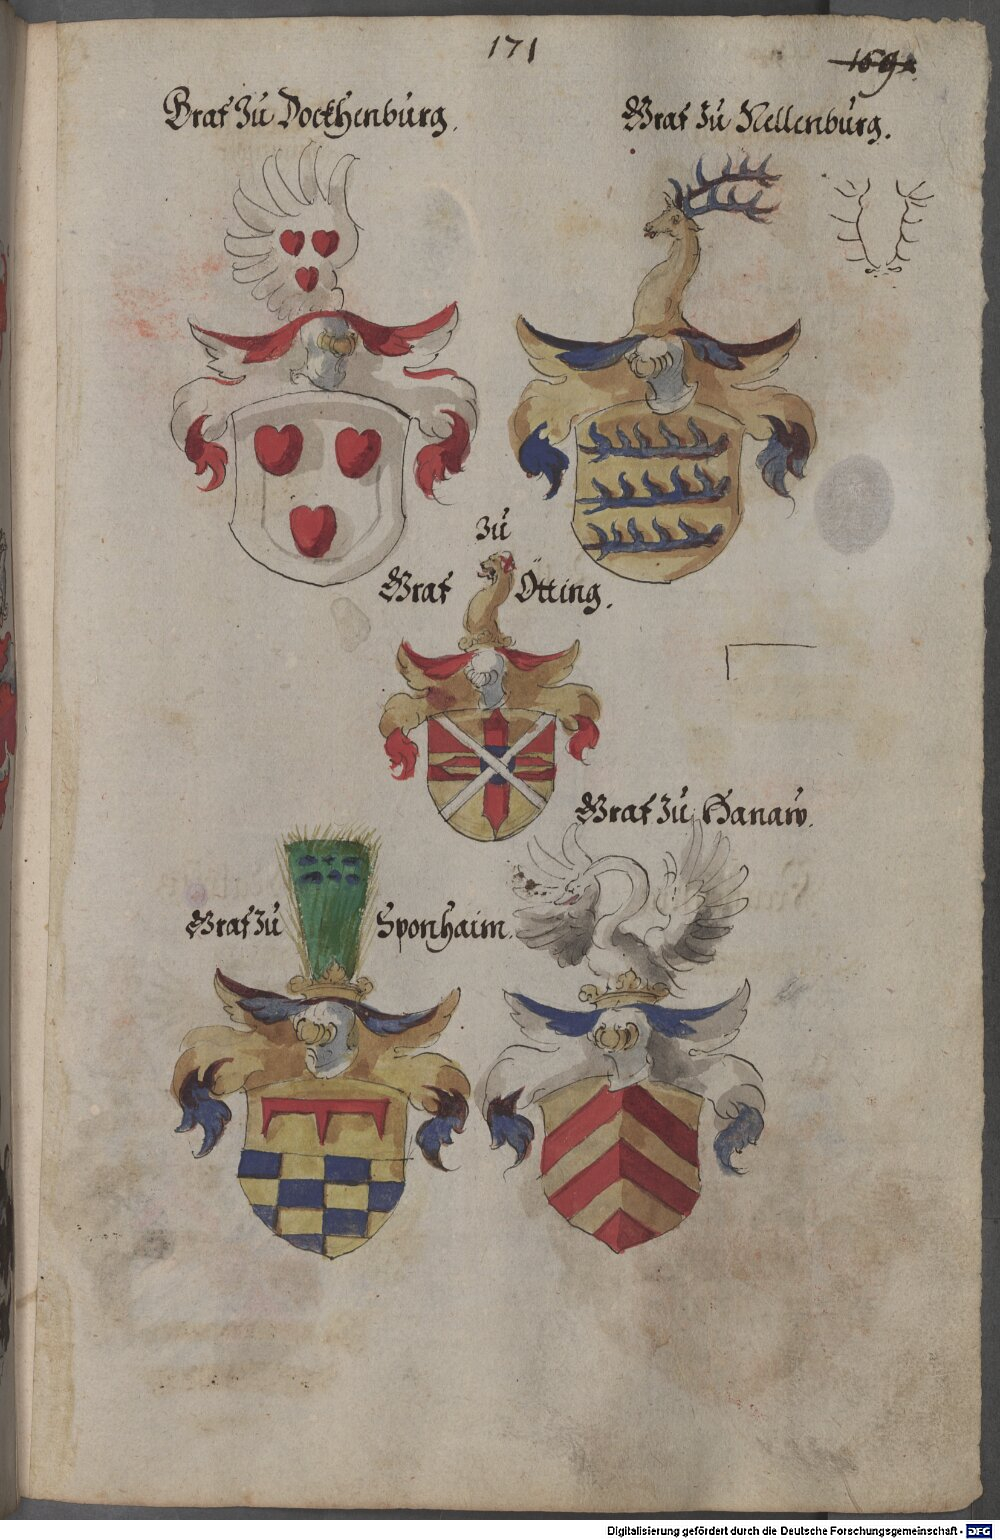 171
169
Graf Zů Dockhenburg.
Graf Zů Nellenburg.
Zů
Graf Ötting.
Graf Zů Hanaw.
Graf Zů Sponhaim.
Digitalisierung gefördert durch die Deutsche Forschungsgemeinschaft - DFG